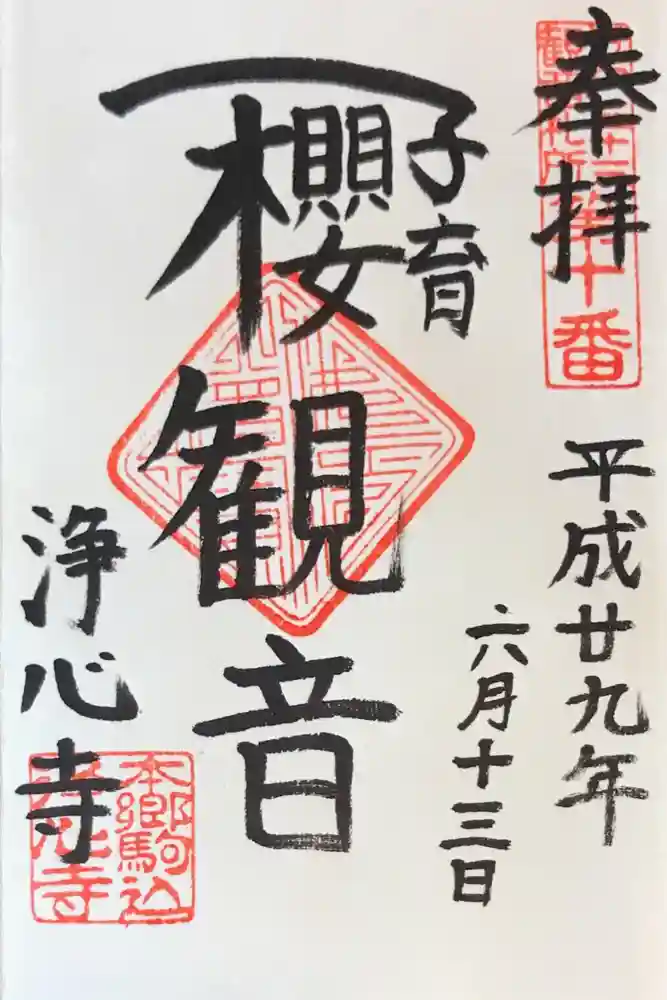 奉拝
第十番
平成廿九年
六月十三日
子育
櫻観音
浄心寺
本郷駒込
浄心寺